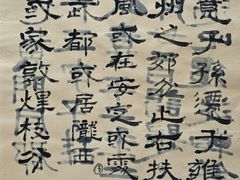 竟子孫遷于雍
州之郊分止右扶
風或在安定或處
武都或居隴西
或家敦煌枝分
③